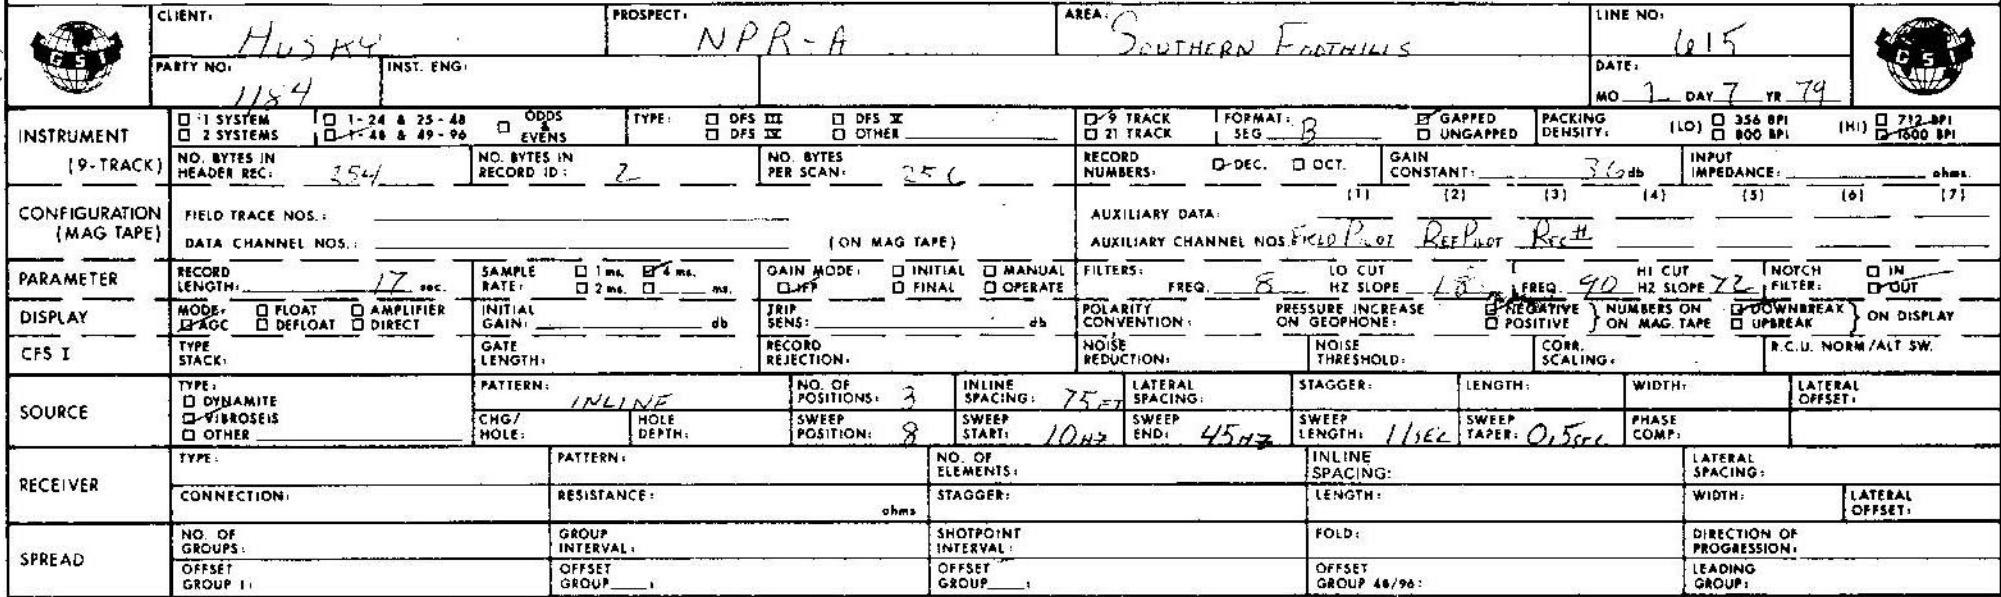 CLIENT: HUSKY PROSPECT: NPR-A AREA: SOUTHERN FOOTHILLS LINE NO: 615
GSI GSI
PARTY NO: 1184 INST. ENG: DATE:
MO 7 DAY 7 YR 79
INSTRUMENT (9-TRACK)
☐ 1 SYSTEM ☐ 1-24 & 25-48 ☐ ODDS & EVENS TYPE: ☐ DFS III ☐ DFS V ☑ 9 TRACK FORMAT: SEG B ☑ GAPPED PACKING DENSITY: (LO) ☐ 356 BPI (HI) ☐ 712 BPI
☐ 2 SYSTEMS ☑ 1-48 & 49-96 ☐ DFS IV ☐ OTHER ☐ 21 TRACK ☐ UNGAPPED ☐ 800 BPI ☑ 1600 BPI
NO. BYTES IN HEADER REC: 254 NO. BYTES IN RECORD ID: 2 NO. BYTES PER SCAN: 256 RECORD NUMBERS: ☑ DEC. ☐ OCT. GAIN CONSTANT: 36 db INPUT IMPEDANCE: ohms.
CONFIGURATION (MAG TAPE)
FIELD TRACE NOS.: AUXILIARY DATA: (1) (2) (3) (4) (5) (6) (7)
DATA CHANNEL NOS.: (ON MAG TAPE) AUXILIARY CHANNEL NOS. FIELD PILOT REF PILOT REC #
PARAMETER RECORD LENGTH: 17 sec. SAMPLE RATE: ☐ 1 ms. ☑ 4 ms. ☐ 2 ms. ☐ ms. GAIN MODE: ☐ INITIAL ☐ MANUAL ☑ IFP ☐ FINAL ☐ OPERATE FILTERS: FREQ. 8 LO CUT HZ SLOPE 18 FREQ. 90 HI CUT HZ SLOPE 72 NOTCH FILTER: ☐ IN ☑ OUT
DISPLAY MODE: ☐ FLOAT ☐ AMPLIFIER ☑ AGC ☐ DEFLOAT ☐ DIRECT INITIAL GAIN: db TRIP SENS: db POLARITY CONVENTION: PRESSURE INCREASE ON GEOPHONE: ☑ NEGATIVE ☐ POSITIVE } NUMBERS ON MAG. TAPE ☑ DOWNBREAK ☐ UPBREAK } ON DISPLAY
CFS I TYPE STACK: GATE LENGTH: RECORD REJECTION: NOISE REDUCTION: NOISE THRESHOLD: CORR. SCALING: R.C.U. NORM/ALT SW.
SOURCE
TYPE: ☐ DYNAMITE ☑ VIBROSEIS ☐ OTHER
PATTERN: INLINE NO. OF POSITIONS: 3 INLINE SPACING: 75 FT LATERAL SPACING: STAGGER: LENGTH: WIDTH: LATERAL OFFSET:
CHG/HOLE: HOLE DEPTH: SWEEP POSITION: 8 SWEEP START: 10 HZ SWEEP END: 45 HZ SWEEP LENGTH: 11 SEC SWEEP TAPER: 0.5 SEC PHASE COMP:
RECEIVER
TYPE: PATTERN: NO. OF ELEMENTS: INLINE SPACING: LATERAL SPACING:
CONNECTION: RESISTANCE: ohms STAGGER: LENGTH: WIDTH: LATERAL OFFSET:
SPREAD
NO. OF GROUPS: GROUP INTERVAL: SHOTPOINT INTERVAL: FOLD: DIRECTION OF PROGRESSION:
OFFSET GROUP 1: OFFSET GROUP : OFFSET GROUP : OFFSET GROUP 48/96: LEADING GROUP: